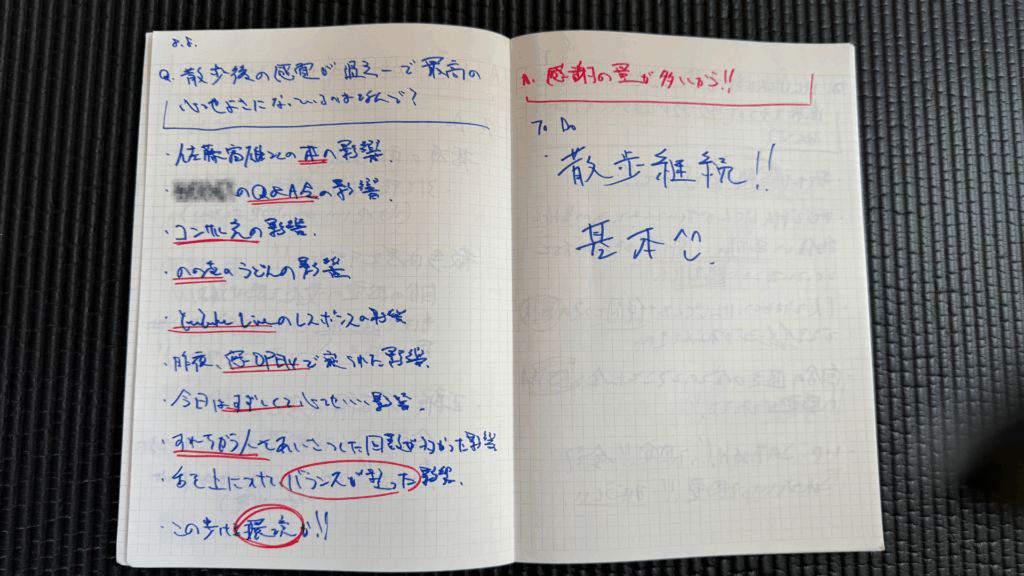 8.8.
Q. 散歩後の感覚が過去一で最高の
心地よさになっているのはなんで?
・佐藤富雄さんの本の影響.
のQ&A会の影響.
・コンサル充の影響.
・ののうどんの影響
・YouTube Liveのレスポンスの影響
・昨夜、窓OPENで寝られた影響.
・今日はすずしくて心地いい影響.
・すれちがう人とあいさつした回数が多かった影響
・舌を上につけてバランスが整った影響.
・この歩ける環境が!!
A. 感謝の量が多いから!!
To Do
・散歩継続!!
基本